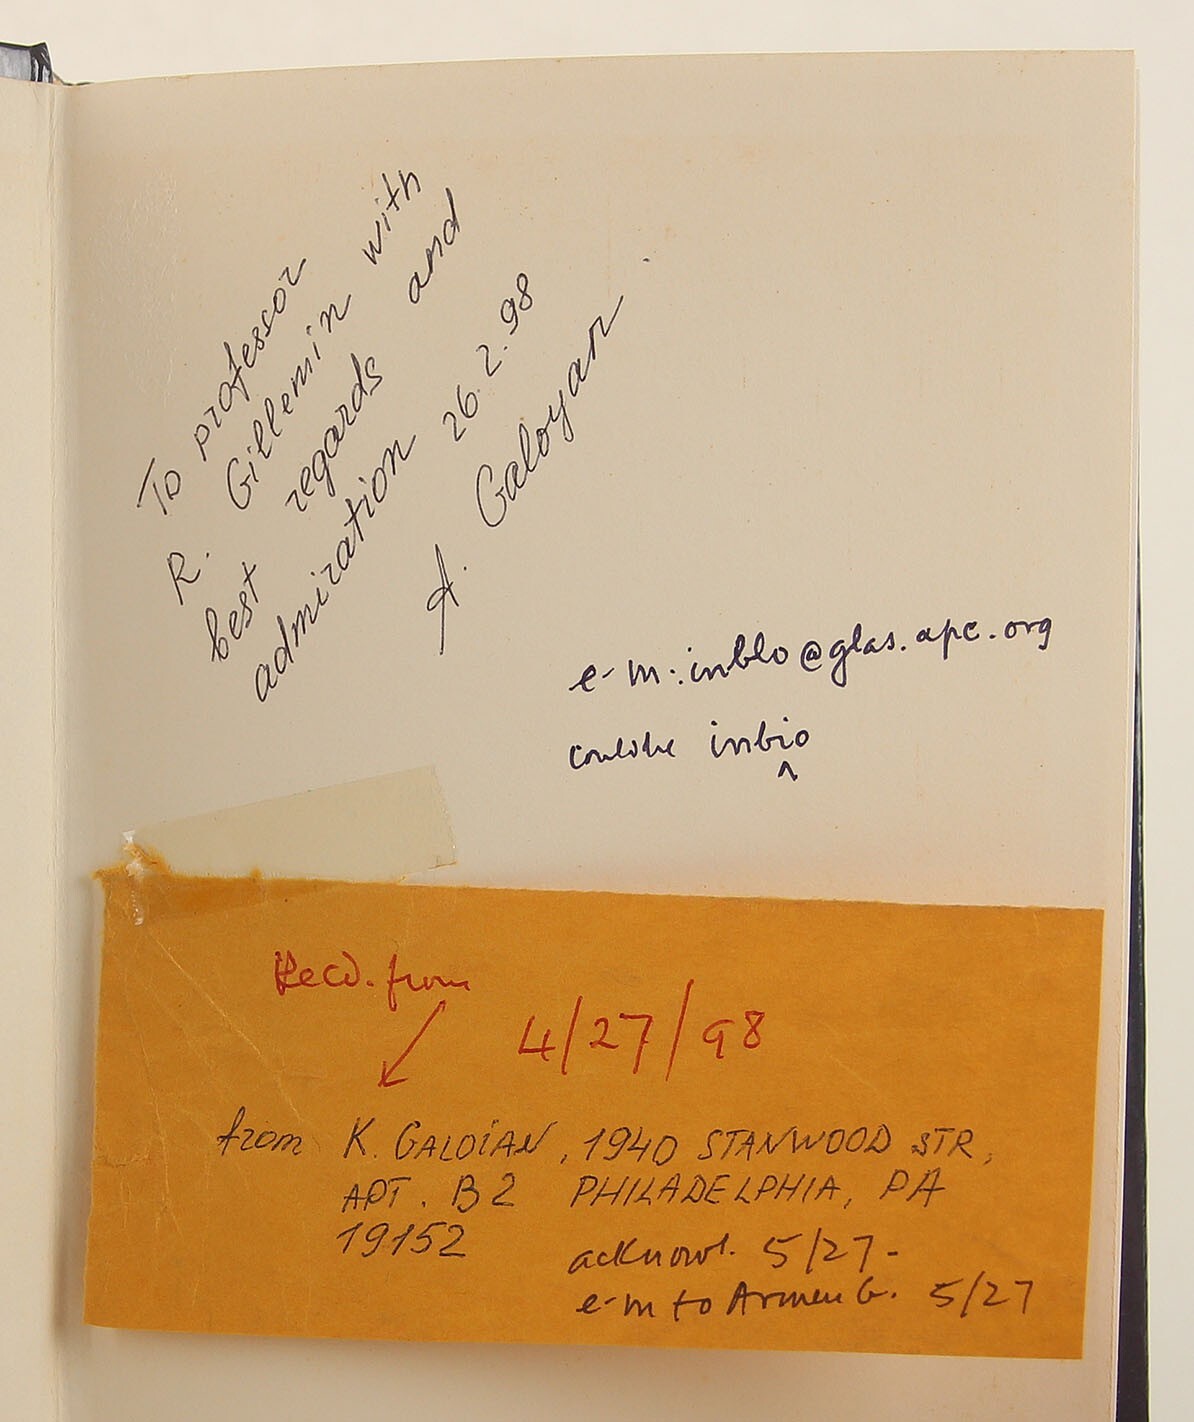 To professor
R. Gillemin with
best regards and
admiration 26.2.98
A. Galoyan
e-m: inblo@glas.apc.org
could be inbio
^
Recd. from
4/27/98
from K. GALOIAN, 1940 STANWOOD STR,
APT. B2 PHILADELPHIA, PA
19152
acknowl. 5/27-
e-m to Armen G. 5/27